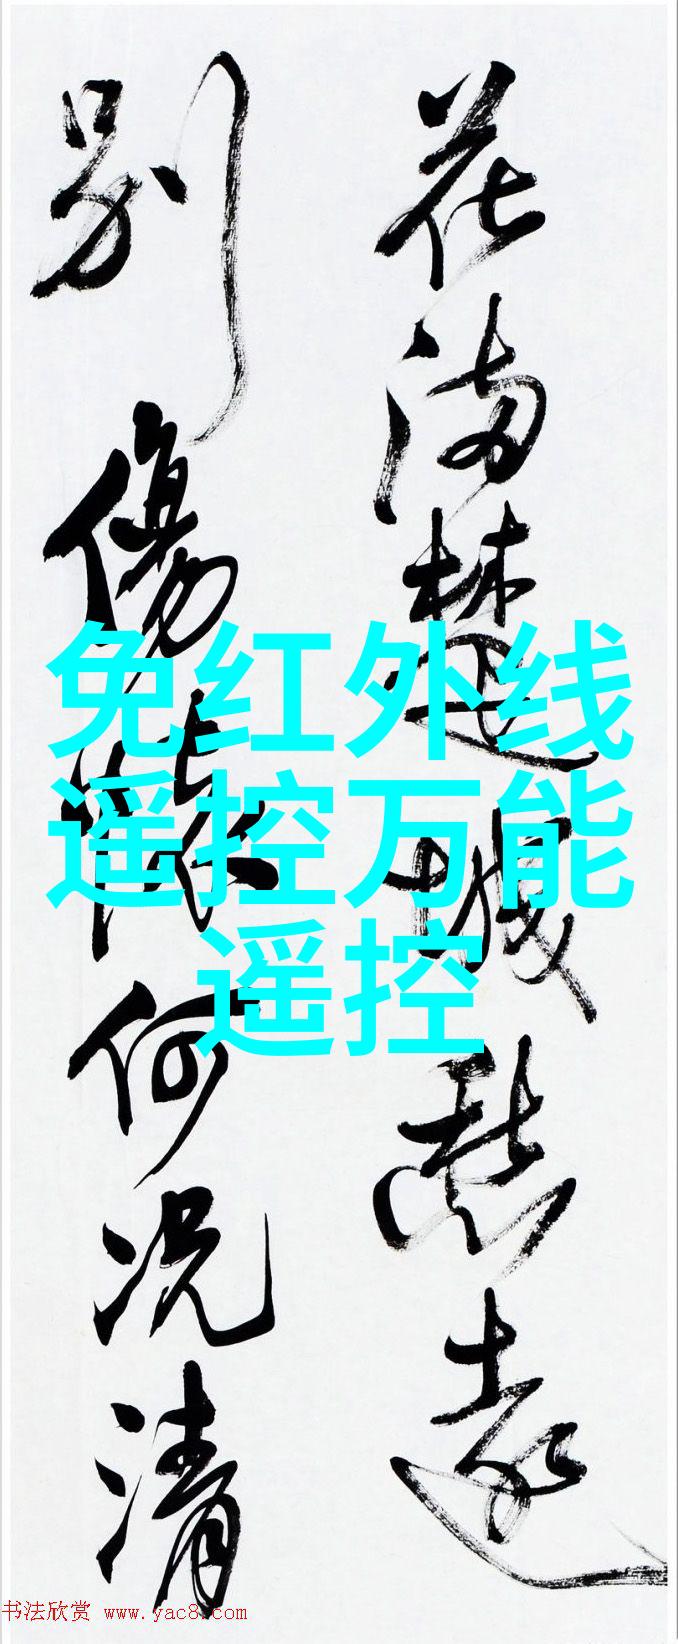 花满楚城愁远
别傷懷何况清
免红外线
遥控万能
遥控
书法欣赏 www.yac8.com